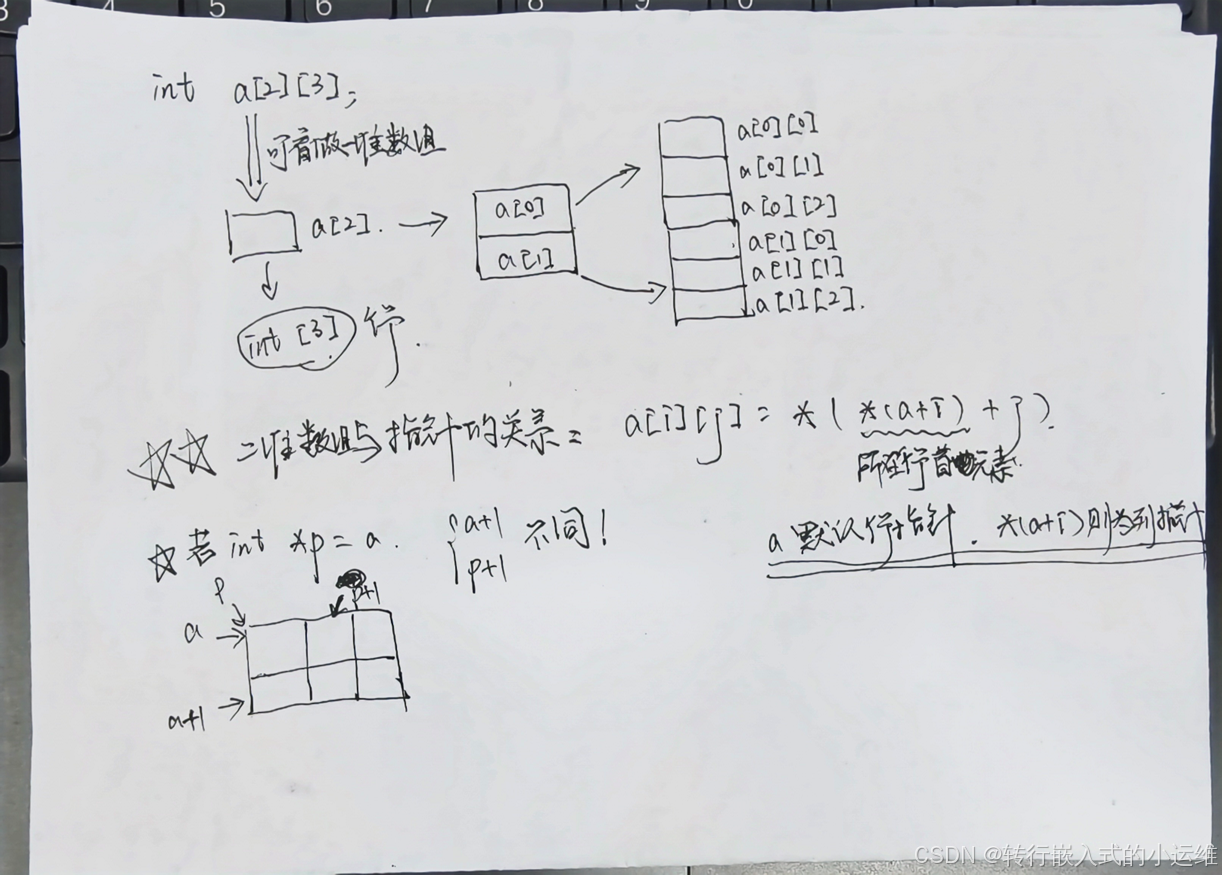 int a[2][3];
可看做一维数组
a[2]. a[0]
a[1]
a[0][0]
a[0][1]
a[0][2]
a[1][0]
a[1][1]
a[1][2].
int [3] 行.
二维数组与指针的关系: a[i][j] = *(*(a+i) + j).
所在行首元素.
a默认行指针. *(a+i)则为列指针
若 int *p = a. { a+1 不同!
p+1
p
p+1
a
a+1
CSDN @转行嵌入式的小运维